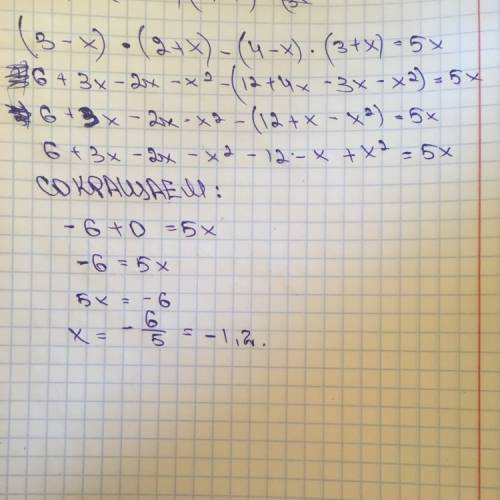 (3-x)·(2+x)-(4-x)·(3+x)=5x
6+3x-2x-x²-(12+4x-3x-x²)=5x
6+3x-2x-x²-(12+x-x²)=5x
6+3x-2x-x²-12-x+x²=5x
СОКРАЩАЕМ:
-6+0=5x
-6=5x
5x=-6
x=-6/5=-1,2.